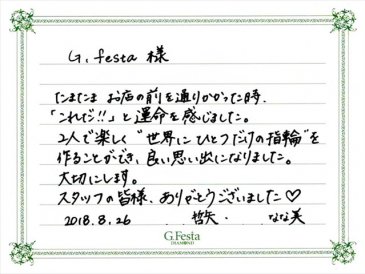 G. festa 様
たまたま お店の前を通りかかった時、
「これだ!!」と運命を感じました。
2人で楽しく"世界にひとつだけの指輪"を
作ることができ、良い思い出になりました。
大切にします。
スタッフの皆様、ありがとうございました♡
2018.8.26 哲矢・ なな美
G.Festa
DIAMOND